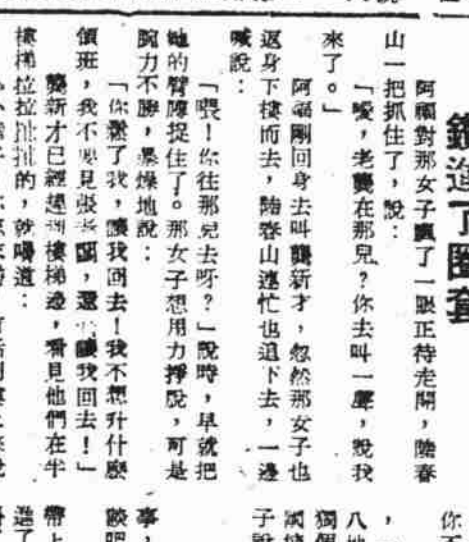 鑽進了圈套
阿福對那女子飄了一眼正待走開，陸春
山一把抓住了，說：
「噯，老龔在那兒？你去叫一聲，說我
來了。」
阿福剛回身去叫龔新才，忽然那女子也
返身下樓而去，陸春山連忙也追下去，一邊
喊說：
「喂！你往那兒去呀？」說時，早就把
她的臂膊捉住了。那女子想用力掙脫，可是
腕力不勝，暴燥地說：
「你鬆了我，讓我回去！我不想升什麼
領班，我不要見張老闆，還是讓我回去！」
龔新才已經趕到樓梯邊，看見他們在半
樓梯拉拉扯扯的，就嚷道：
你
，
八
獨個
子說
事，
談吧
帶上
進了